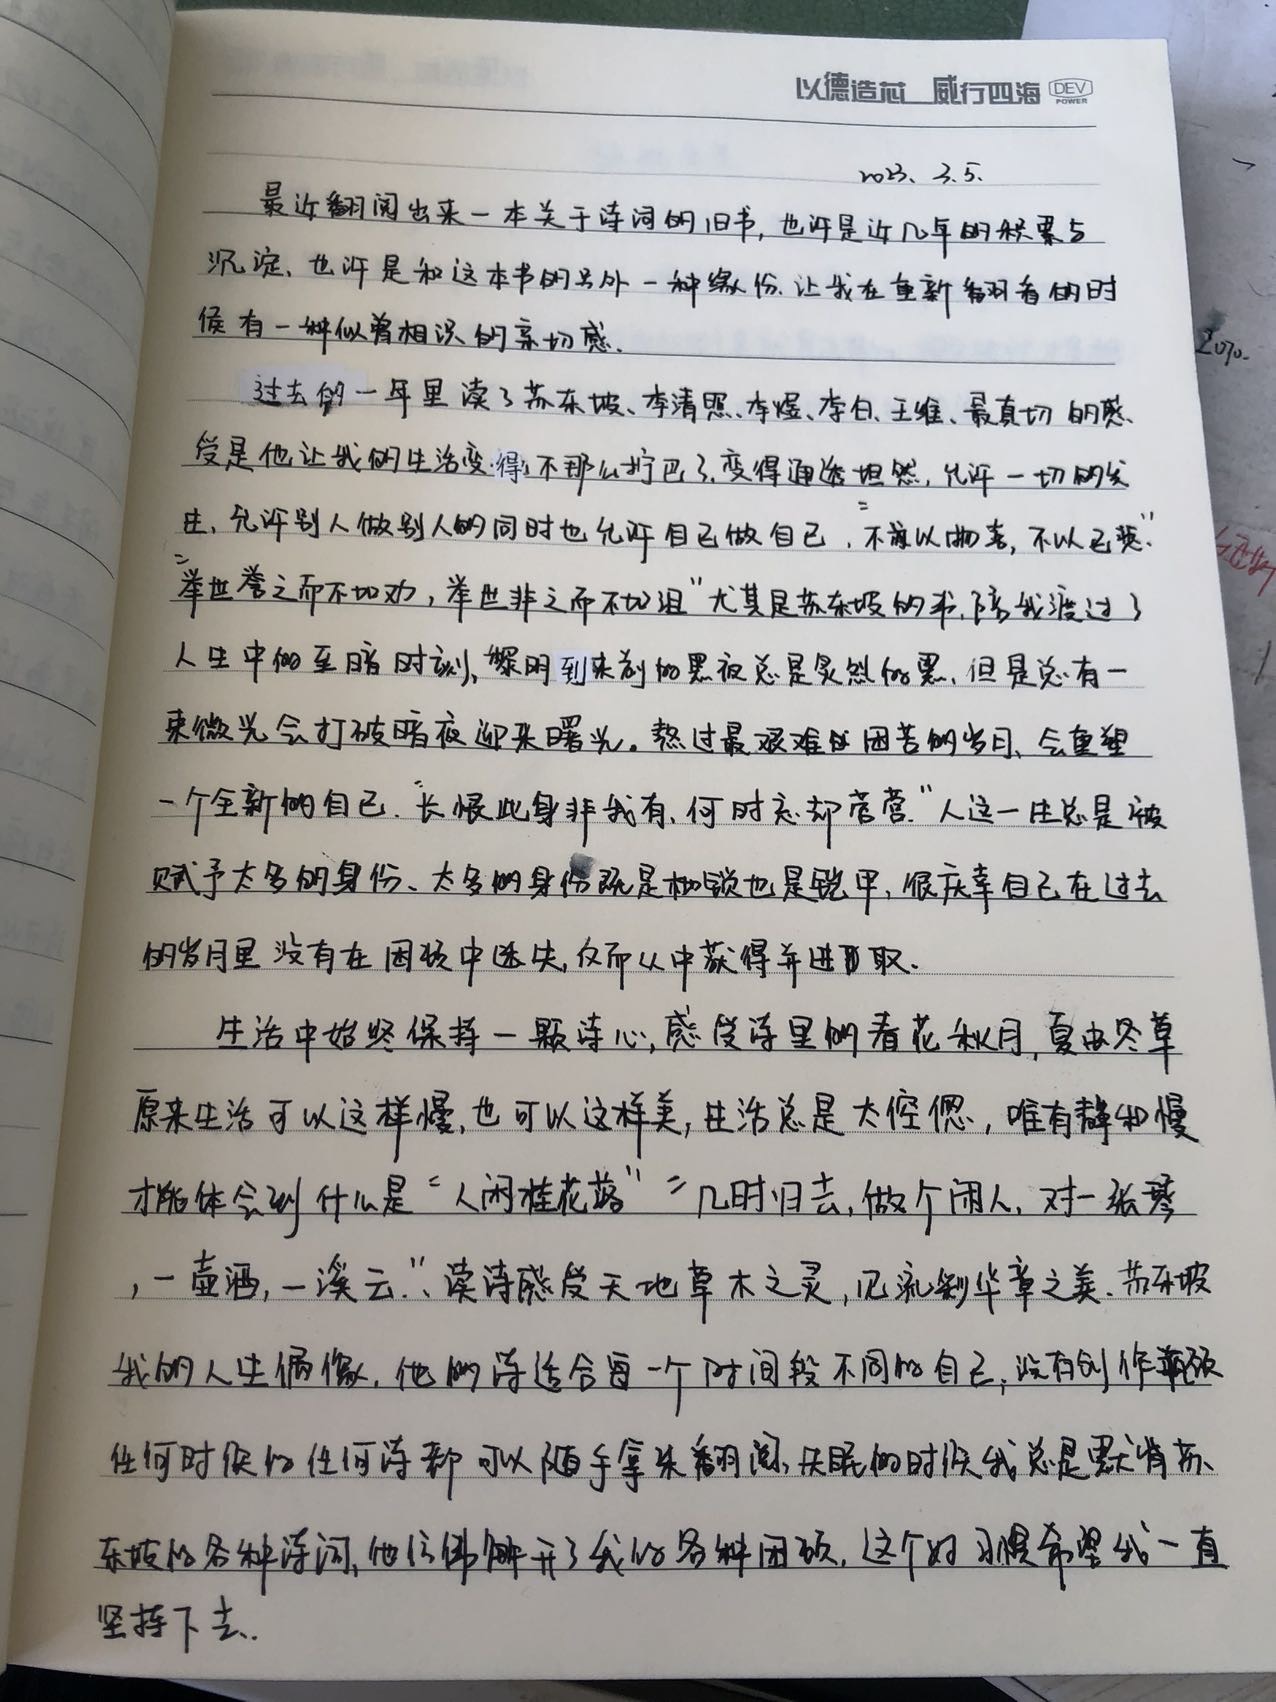 以德造芯 威行四海 DEV POWER
2023. 3.5.
最近翻阅出来一本关于诗词的旧书,也许是近几年的积累与
沉淀、也许是和这本书的另外一种缘份、让我在重新翻看的时
候有一种似曾相识的亲切感.
过去的一年里读了苏东坡、李清照、李煜、李白、王维、最真切的感
受是他让我的生活变得不那么拧巴了、变得通透坦然,允许一切的发
生,允许别人做别人的同时也允许自己做自己,"不以物喜,不以己悲"
"举世誉之而不加劝,举世非之而不加沮"尤其是苏东坡的书,陪我渡过了
人生中的至暗时刻,黎明到来前的黑夜总是炙烈的黑、但是总有一
束微光会打破暗夜迎来曙光。熬过最艰难的困苦的岁月、会重塑
一个全新的自己."长恨此身非我有、何时忘却营营."人这一生总是被
赋予太多的身份、太多的身份既是枷锁也是铠甲,很庆幸自己在过去
的岁月里没有在困顿中迷失,反而从中获得并进取.
生活中始终保持一颗诗心,感受诗里的春花秋月,夏虫冬草
原来生活可以这样慢,也可以这样美,生活总是太倥偬,唯有静和慢
才能体会到什么是"人闲桂花落""几时归去,做个闲人,对一张琴
,一壶酒,一溪云."、读诗感受天地草木之灵,见流彩华章之美.苏东坡
我的人生偶像,他的诗适合每一个时间段不同的自己,没有创作
任何时候的任何诗都可以随手拿来翻阅,失眠的时候我总是默背苏
东坡的各种诗词,他仿佛解开了我的各种困顿,这个好习惯希望我一直
坚持下去..
2070.